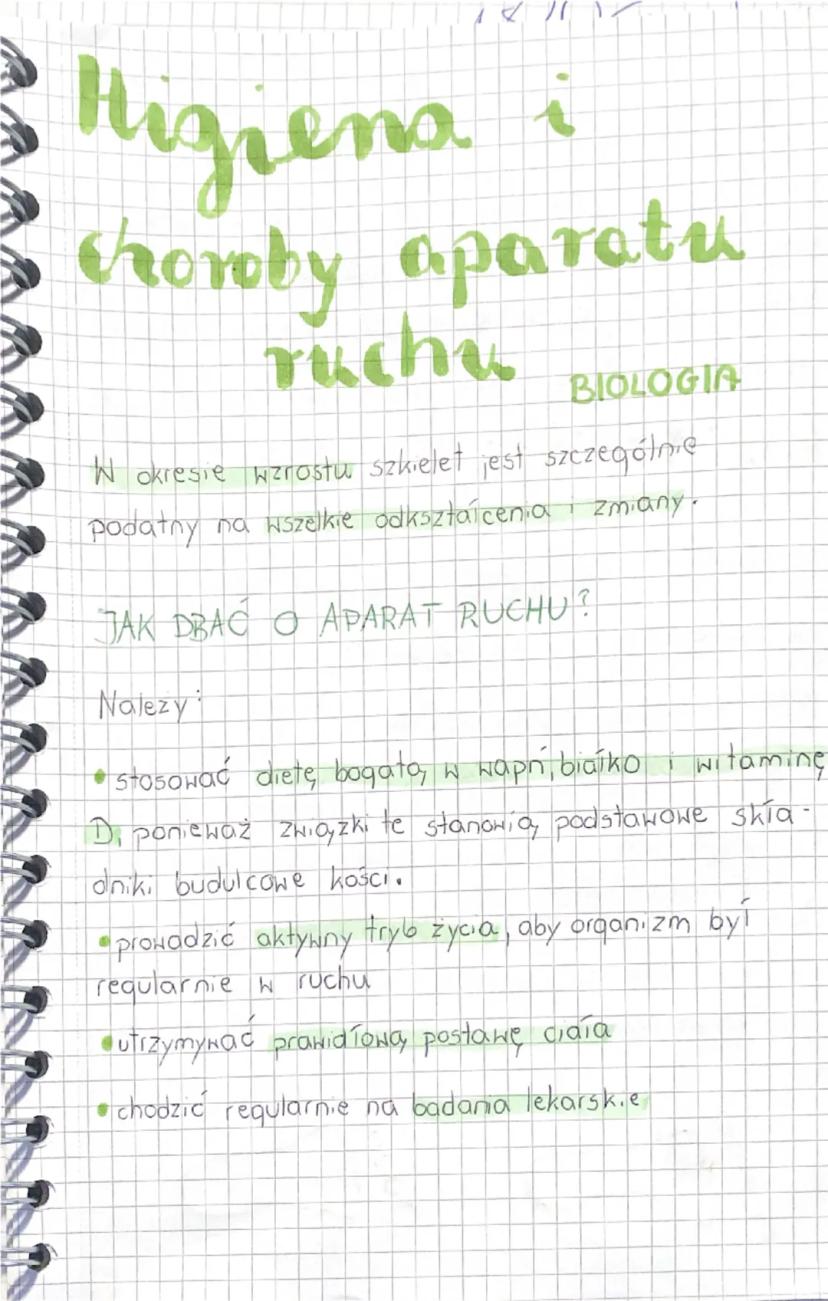 Higiena i
choroby aparatu
ruchu
BIOLOGIA
W okresie wzrostu szkielet jest szczególnie
podatny na wszelkie odkształcenia i zmiany.
JAK DBAĆ O APARAT RUCHU?
Należy:
• stosować dietę bogatą w wapń, białko i witaminę
D, ponieważ związki te stanowią podstawowe skła-
dniki budulcowe kości.
• prowadzić aktywny tryb życia, aby organizm był
regularnie w ruchu
• utrzymywać prawidłową postawę ciała
• chodzić regularnie na badania lekarskie